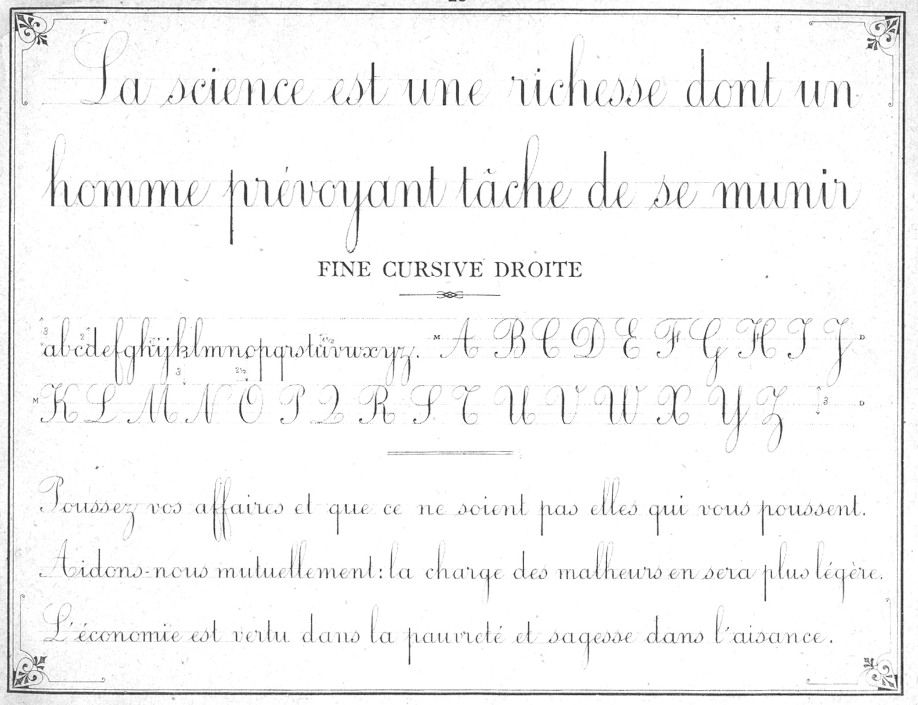 La science est une richesse dont un
homme prévoyant tâche de se munir
FINE CURSIVE DROITE
abcdefghijklmnopqrstuvwxyz. M A B C D E F G H I J D
M K L M N O P Q R S T U V W X Y Z 3 D
Poussez vos affaires et que ce ne soient pas elles qui vous poussent.
Aidons-nous mutuellement: la charge des malheurs en sera plus légère.
L'économie est vertu dans la pauvreté et sagesse dans l'aisance.